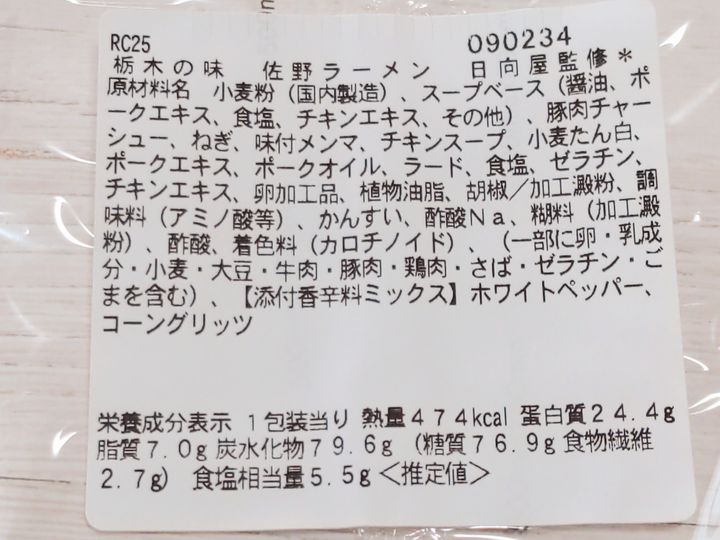 RC25 090234
栃木の味 佐野ラーメン 日向屋監修＊
原材料名 小麦粉（国内製造）、スープベース（醤油、ポ
ークエキス、食塩、チキンエキス、その他）、豚肉チャー
シュー、ねぎ、味付メンマ、チキンスープ、小麦たん白、
ポークエキス、ポークオイル、ラード、食塩、ゼラチン、
チキンエキス、卵加工品、植物油脂、胡椒／加工澱粉、調
味料（アミノ酸等）、かんすい、酢酸Ｎａ、糊料（加工澱
粉）、酢酸、着色料（カロチノイド）、（一部に卵・乳成
分・小麦・大豆・牛肉・豚肉・鶏肉・さば・ゼラチン・ご
まを含む）、【添付香辛料ミックス】ホワイトペッパー、
コーングリッツ
栄養成分表示 １包装当り 熱量４７４kcal 蛋白質２４.４g
脂質７.０g 炭水化物７９.６g （糖質７６.９g 食物繊維
２.７g） 食塩相当量５.５g＜推定値＞